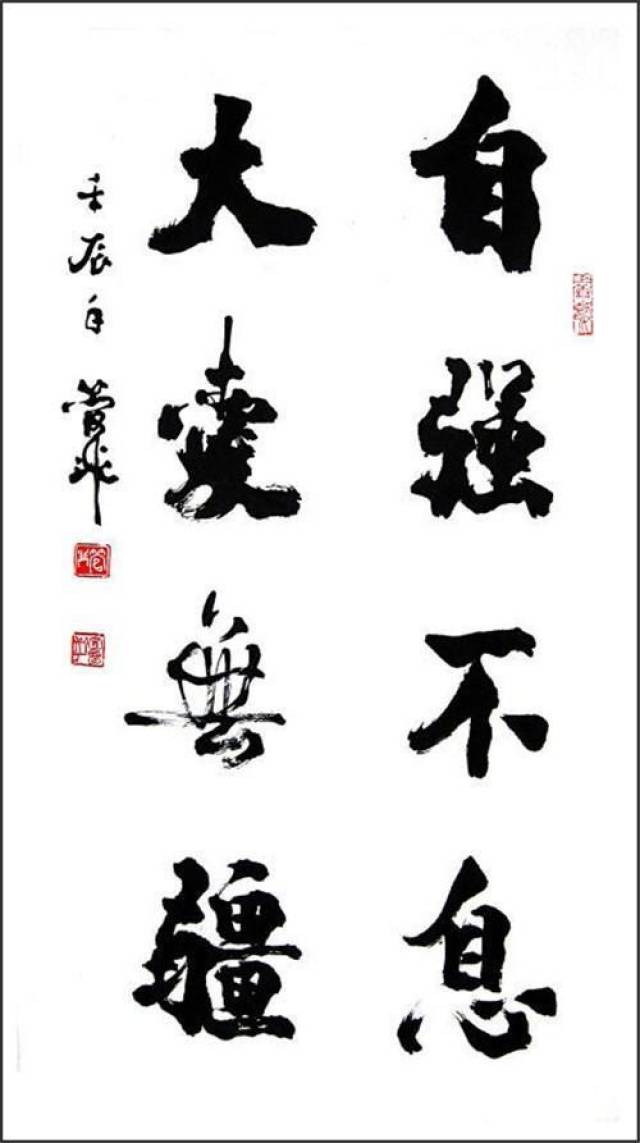 自强不息
大愛無疆
壬辰年